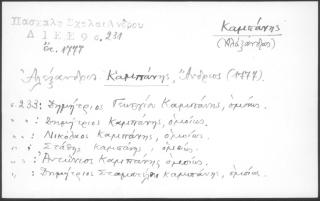 Πασχάλη Σχολαὶ Ἄνδρου
Δ Ι Ε Ε 9 σ. 231
ἔτ. 1777
Καμπάνης
(Ἀλέξανδρος)
Ἀλέξανδρος Καμπάνης, Ἄνδριος (1777).
σ. 233: Δημήτριος Καμπάνης, ὁμοίως.
" " : Δημήτριος Καμπάνης, ὁμοίως.
" " : Νικόλαος Καμπάνης, ὁμοίως.
" " : Στάθης Καμπάνης, ὁμοίως.
" " : Ἀντώνιος Καμπάνης ὁμοίως.
" " : Δημήτριος Σταματέλου Καμπάνης, ὁμοίως.